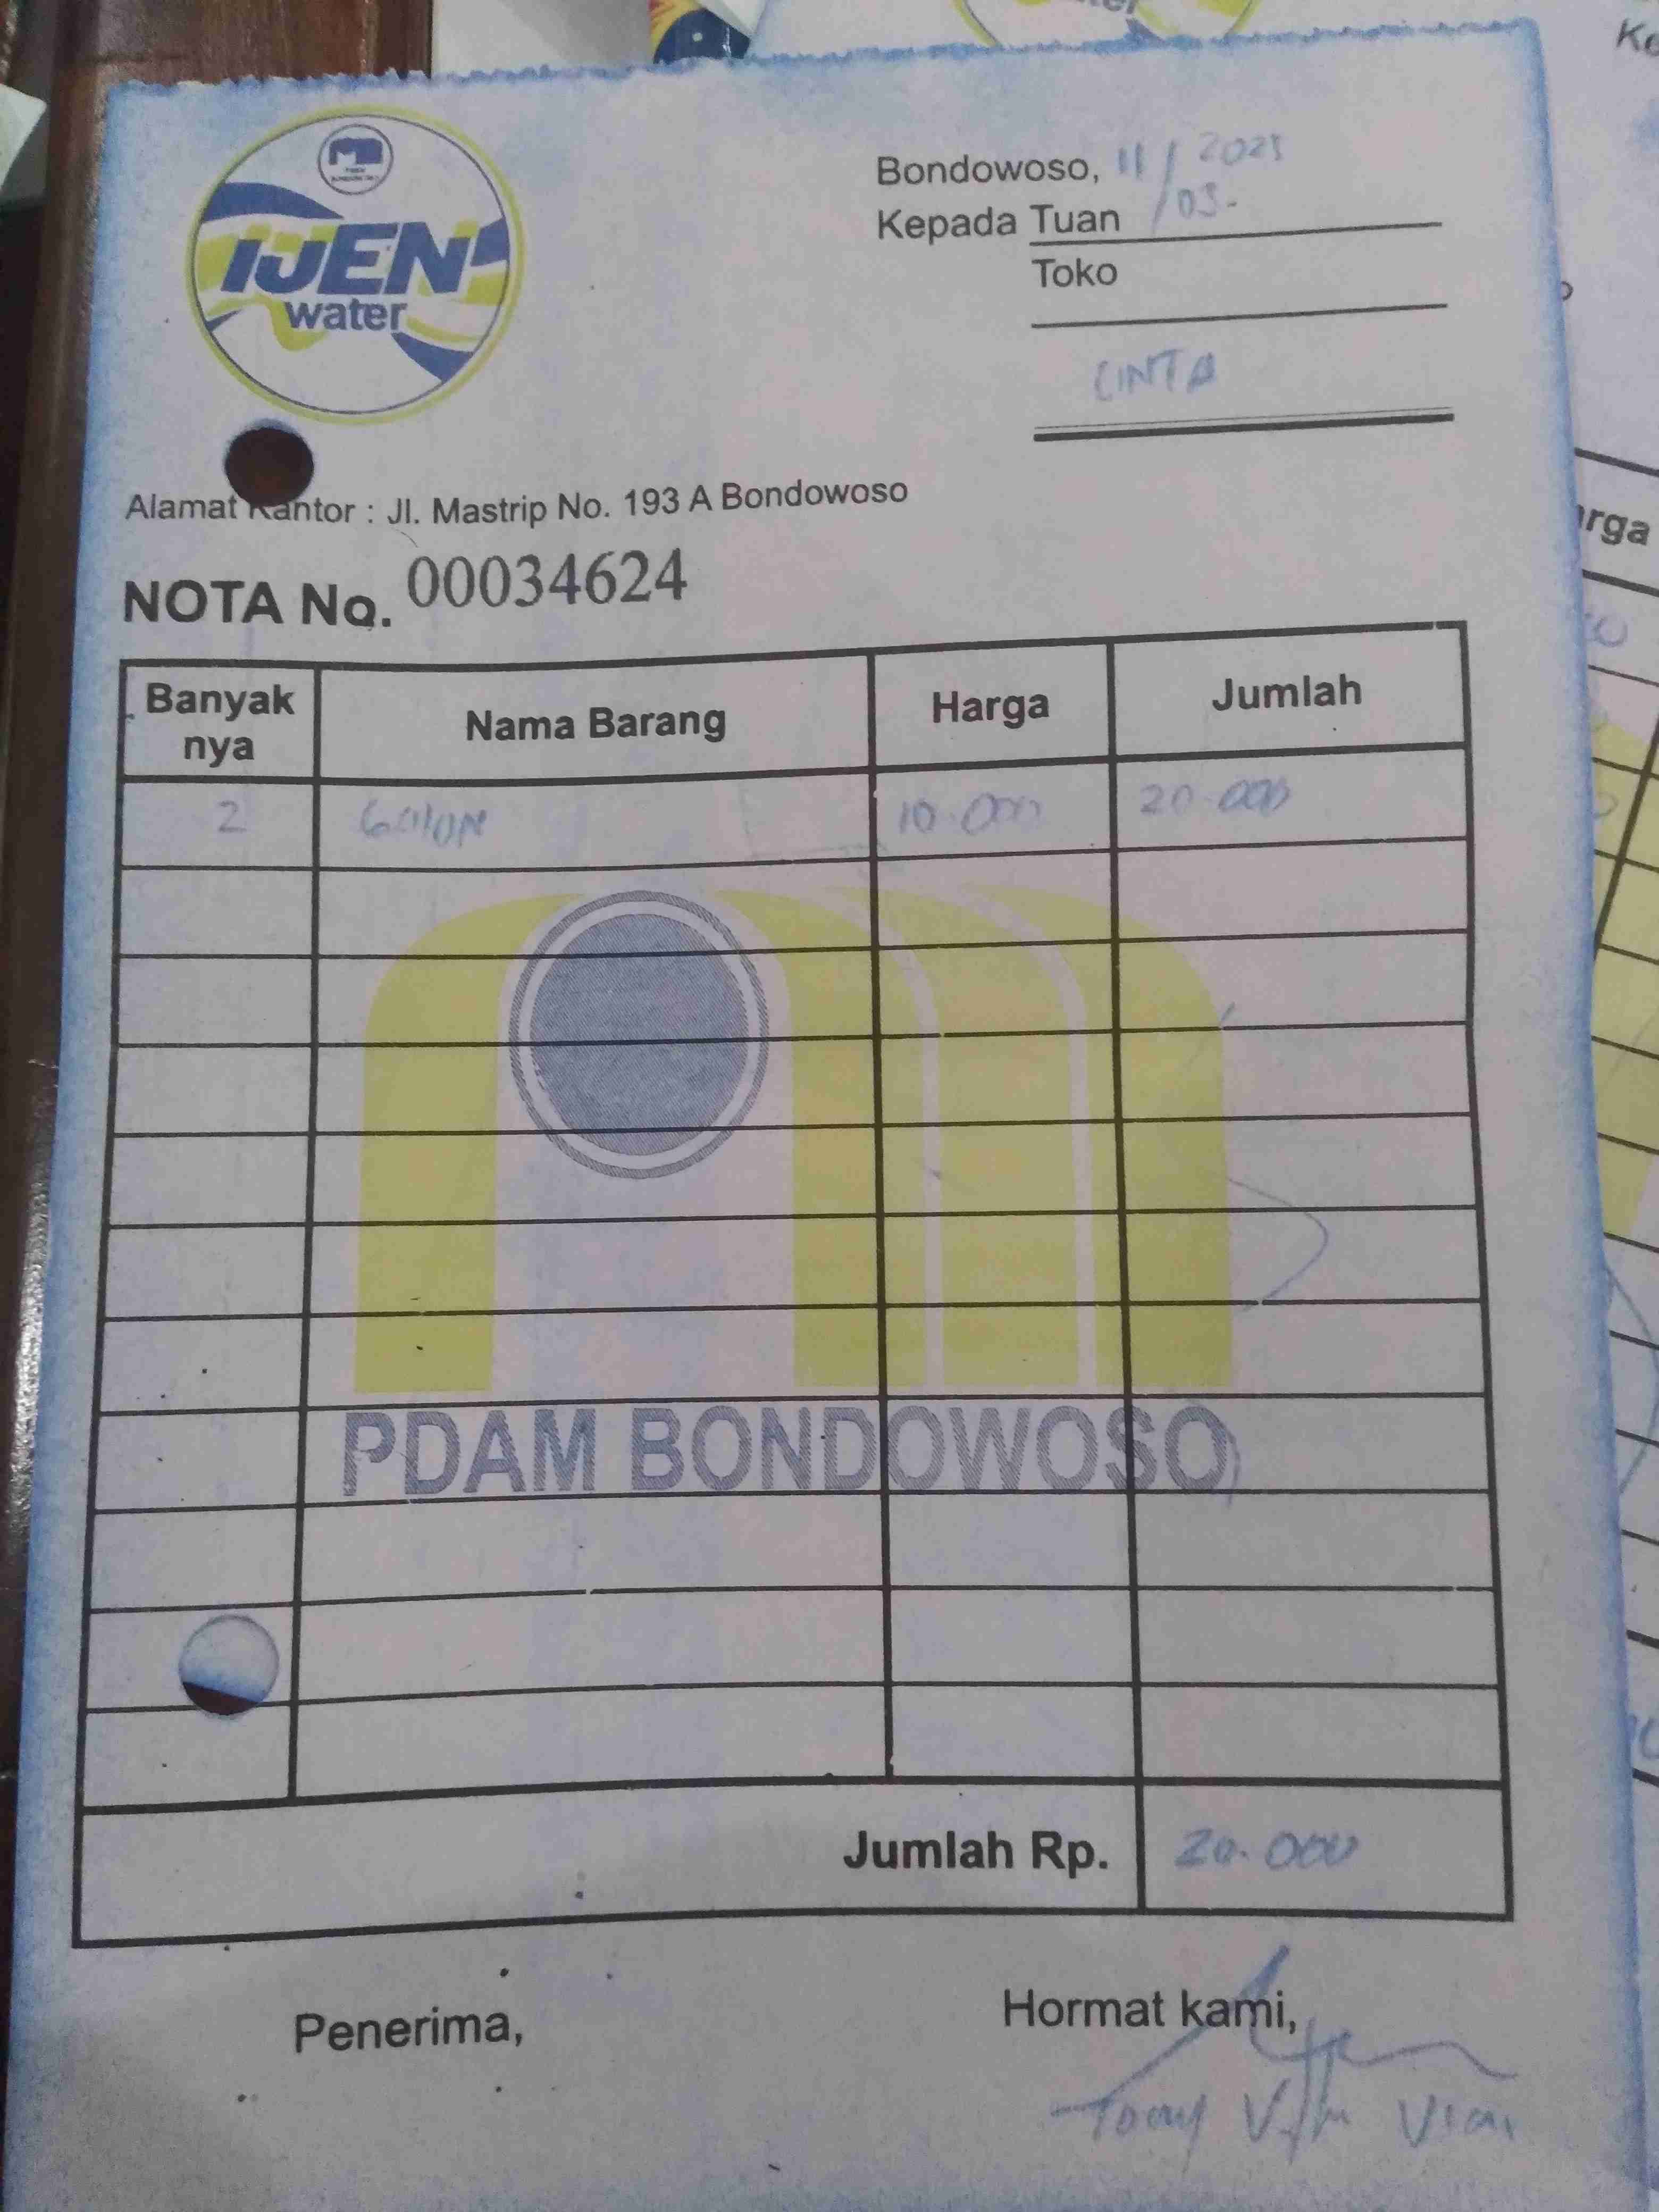 IJEN
water
Bondowoso, 11/03-2025
Kepada Tuan
Toko
CINTA
Alamat Kantor : Jl. Mastrip No. 193 A Bondowoso
NOTA No. 00034624
Banyak nya Nama Barang Harga Jumlah
2 Gallon 10.000 20.000
PDAM BONDOWOSO
Jumlah Rp. 20.000
Penerima, Hormat kami,
rga